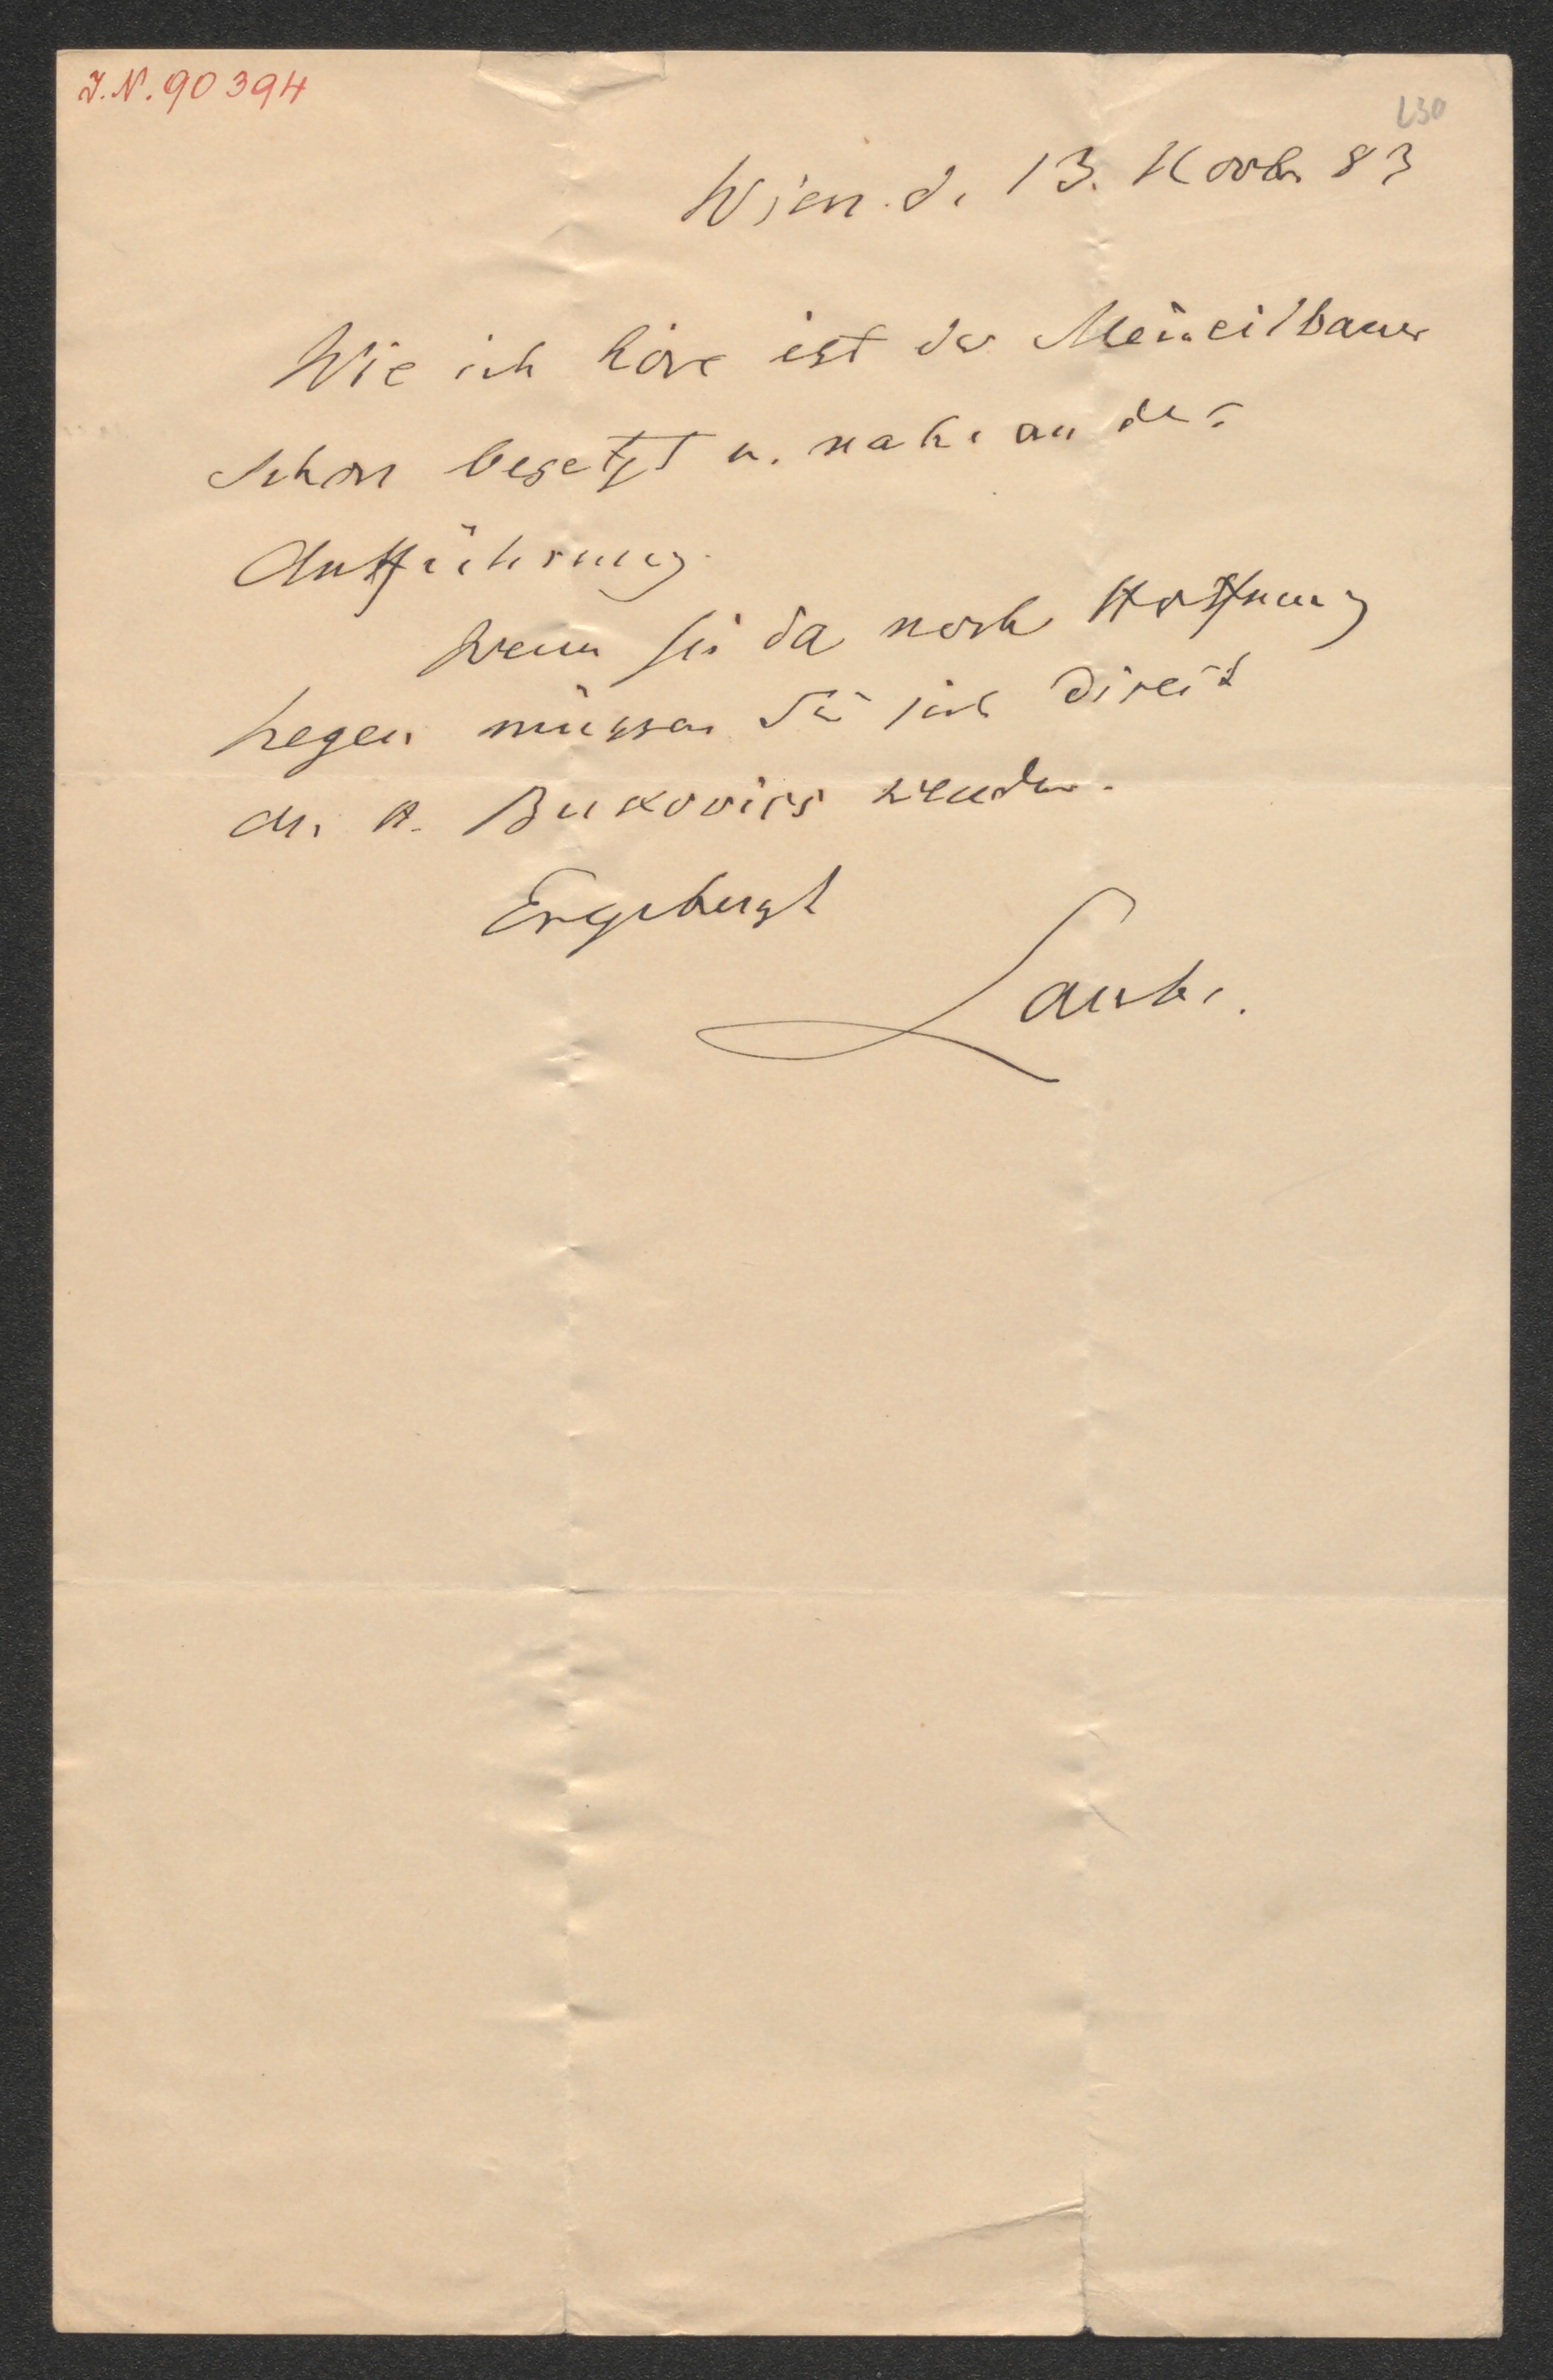 J.N. 90394
L30
Wien. d. 13. Novbr 83
Wie ich höre ist der Meineidbauer
schon besetzt u. nahe an der
Aufführung.
Wenn Sie da noch Hoffnung
hegen müssen Sie sich direkt
an H. Bukovics wenden.
Ergebenst
Laube.